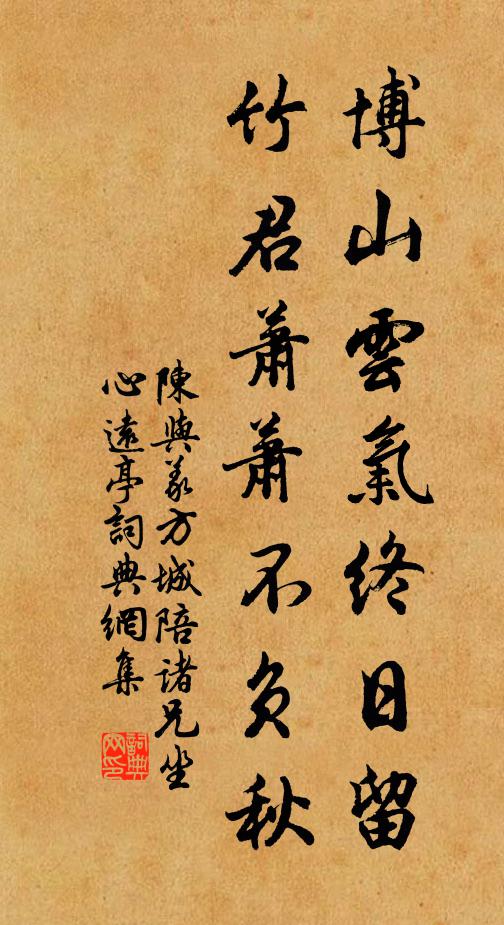 博山雲氣終日留
竹君蕭蕭不負秋
陳與義方城陪諸兄坐
心遠亭詞典網集
詞典
网印